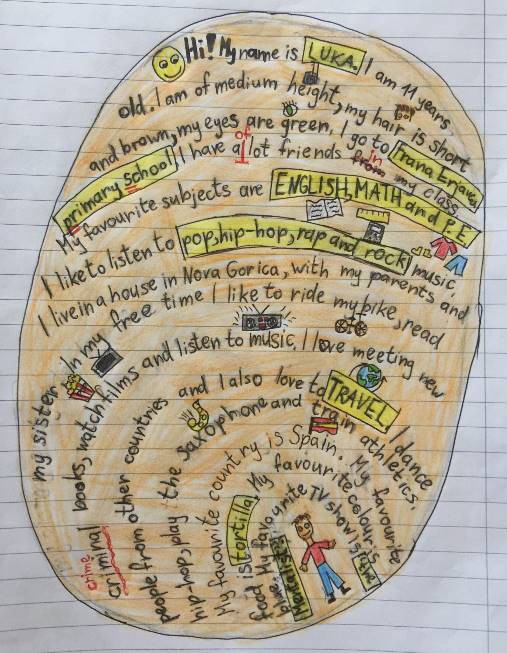 Hi! My name is LUKA. I am 11 years
old. I am of medium height, my hair is short
and brown, my eyes are green. I go to Frana Erjavca
of
in
primary school. I have a lot friends from my class.
My favourite subjects are ENGLISH, MATH and P.E.
I like to listen to pop, hip-hop, rap and rock music.
I live in a house in Nova Gorica, with my parents and
my sister. In my free time I like to ride my bike, read
crime
criminal books, watch films and listen to music. I love meeting new
people from other countries and I also love to TRAVEL. I dance
hip-hop, play the saxophone and train athletics.
My favourite country is Spain. My favourite
food is tortilla. My favourite colour is
blue. My favourite TV show is